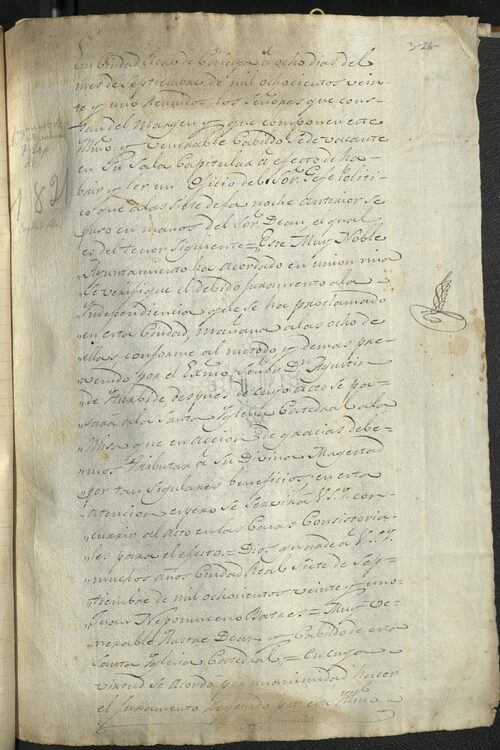 3-26-
En Ciudad Real de Chiapa á ocho dias del
mes de Septiembre de mil ochocientos vein-
te y uno Reunidos los Señores que cons-
tan del margen y que componen este
Yllmo. y Venerable Cabildo Sede vacante
en Su Sala Capitular á efecto de ha-
brir y ler un Oficio del Sor. Gefe Politi-
co que a las siete de la noche anterior se
puso en manos del Sor. Dean, el qual
es del tenor siguiente = „Este Muy Noble
„Ayuntamiento ha acordado en union mia
„Se verifique el debido juramento a la
„Independiencia que se ha proclamado
„en esta Ciudad, mañana a las ocho de
„ella, conforme al método y demas pre-
„venido por el Exmo. Señor Dn. Agustin
„de Yturbide despues de cuyo acto se pa-
„sará a la Santa Yglesia Catedral a la
„Misa que en accion de gracias debe-
„mos tributar á Su Divina Magestad
„por tan sigulares beneficios, en esta
„atencion espero se servirá V.S.Y. con-
„currir al acto en las Casas Consistoria-
„les para el efecto. = Dios guarde á V.S.Y.
„muchos años Ciudad Real Siete de Sep-
„tiembre de mil ochocientos veinte y uno
„Juan Nepomuceno Batres = Muy Ve-
„nerable Ylustre Dean y Cabildo de esta
Santa Yglesia Catedral, = En cuya
virtud se acordó por unanimidad hacer
el juramento referido por este Yllmo. y